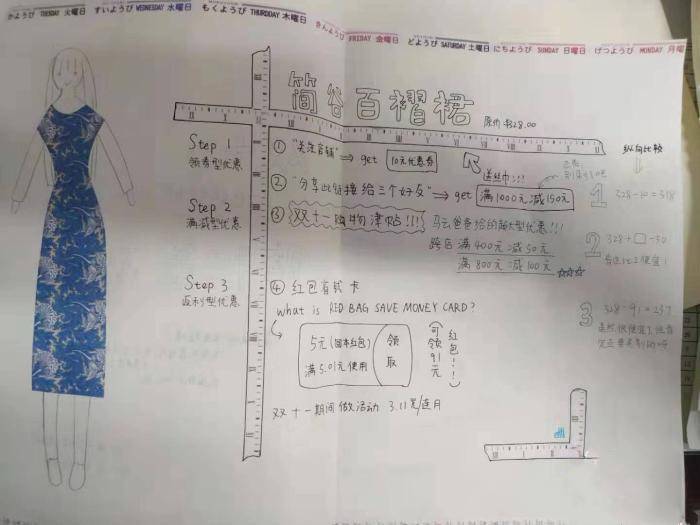 かようび TUESDAY 火曜日 すいようび WEDNESDAY 水曜日 もくようび THURDDAY 木曜日 きんようび FRIDAY 金曜日 どようび SATURDAY 土曜日 にちようび SUNDAY 日曜日 げつようび MONDAY 月曜
简谷百褶裙
原价 ¥328.00
Step 1
领券型优惠
① "关注店铺" ⇒ get 10元优惠券
送丝巾!!!
② "分享此链接给三个好友" ⇒ get 满1000元减150元
Step 2
满减型优惠
③ 双十一购物津贴!!!
马云爸爸给的超大型优惠!!!
跨店 满400元减50元
满800元减100元 ☆☆☆
Step 3
返利型优惠
④ 红包省钱卡
What is RED BAG SAVE MONEY CARD?
5元(回本红包)
满5.01元使用
领取
可领91元
红包!!!
双十一期间做活动 3.11元/连月
纵向比较
1 328-10=318
2 328+□-50
3 328-91=237